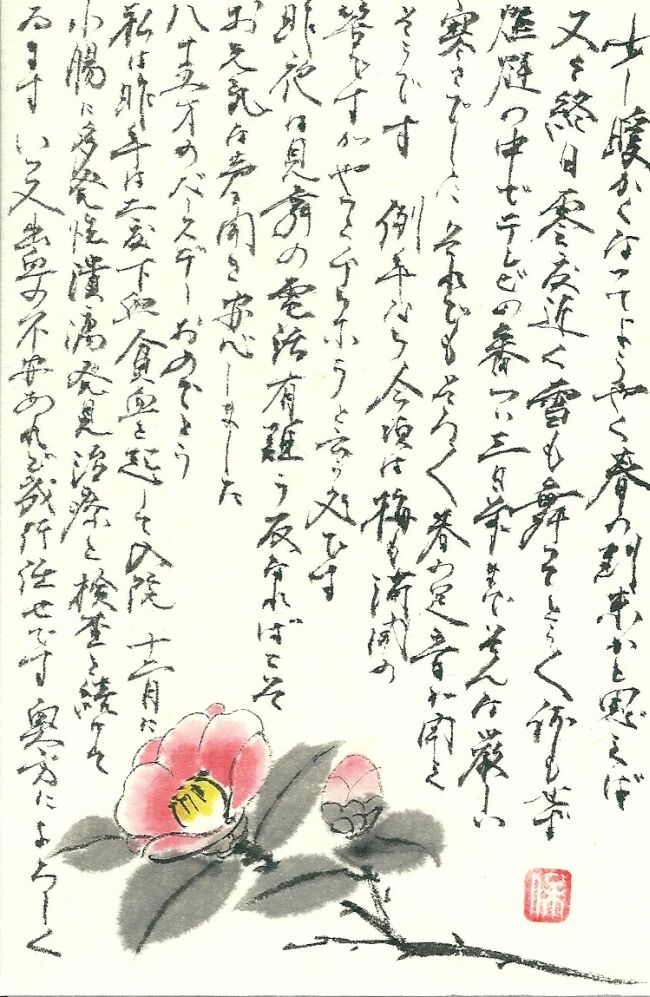 少し暖かくなってようやく春の到来かと思えば
又々終日零度近く雪も舞って
炬燵の中でテレビの番 つい三日前までそんな厳しい
寒さでした それでもそろ〳〵春の足音が聞え
そうです 例年なら今頃は梅も満開の
筈ですがやっとチラホラと云う処です
昨夜は見舞の電話有難う 友なればこそ
お元気な声を聞き安心しました
八十五才のバースデーおめでとう
私は昨年は二度下血貧血を起して入院 十二月に
小腸に多発性潰瘍発見治療と検査を続けて
ゐます いつ又出血の不安あれど成行任せです 奥方によろしく